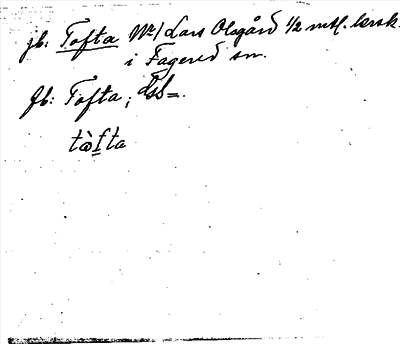 jb: Tofta Nr 1 Lars Olsgård 1/2 mtl.
i Fagered sn.
jb: Tofta;
tòfta